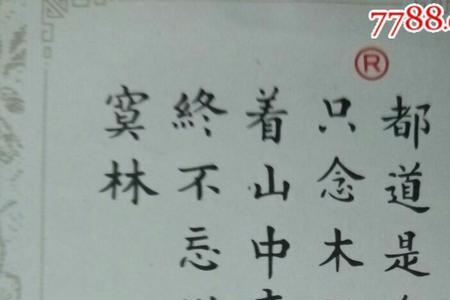 7788.c
®
都道是
只念木
着山中
終不忘
寞林